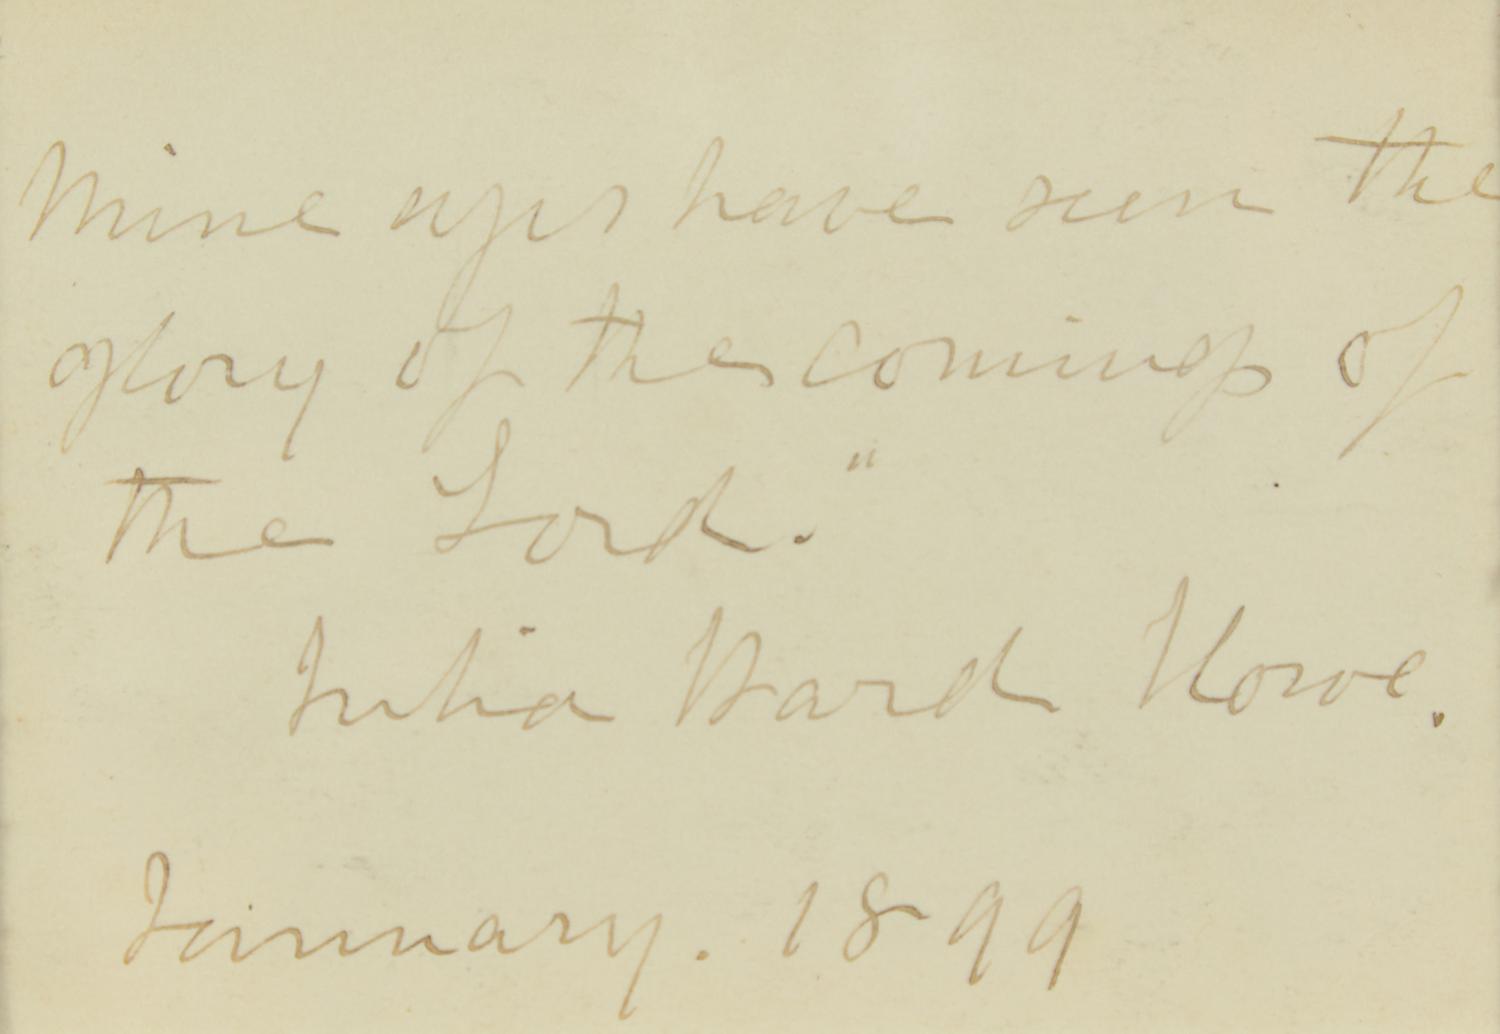 Mine eyes have seen the
glory of the coming of
the Lord."
Julia Ward Howe.
January. 1899